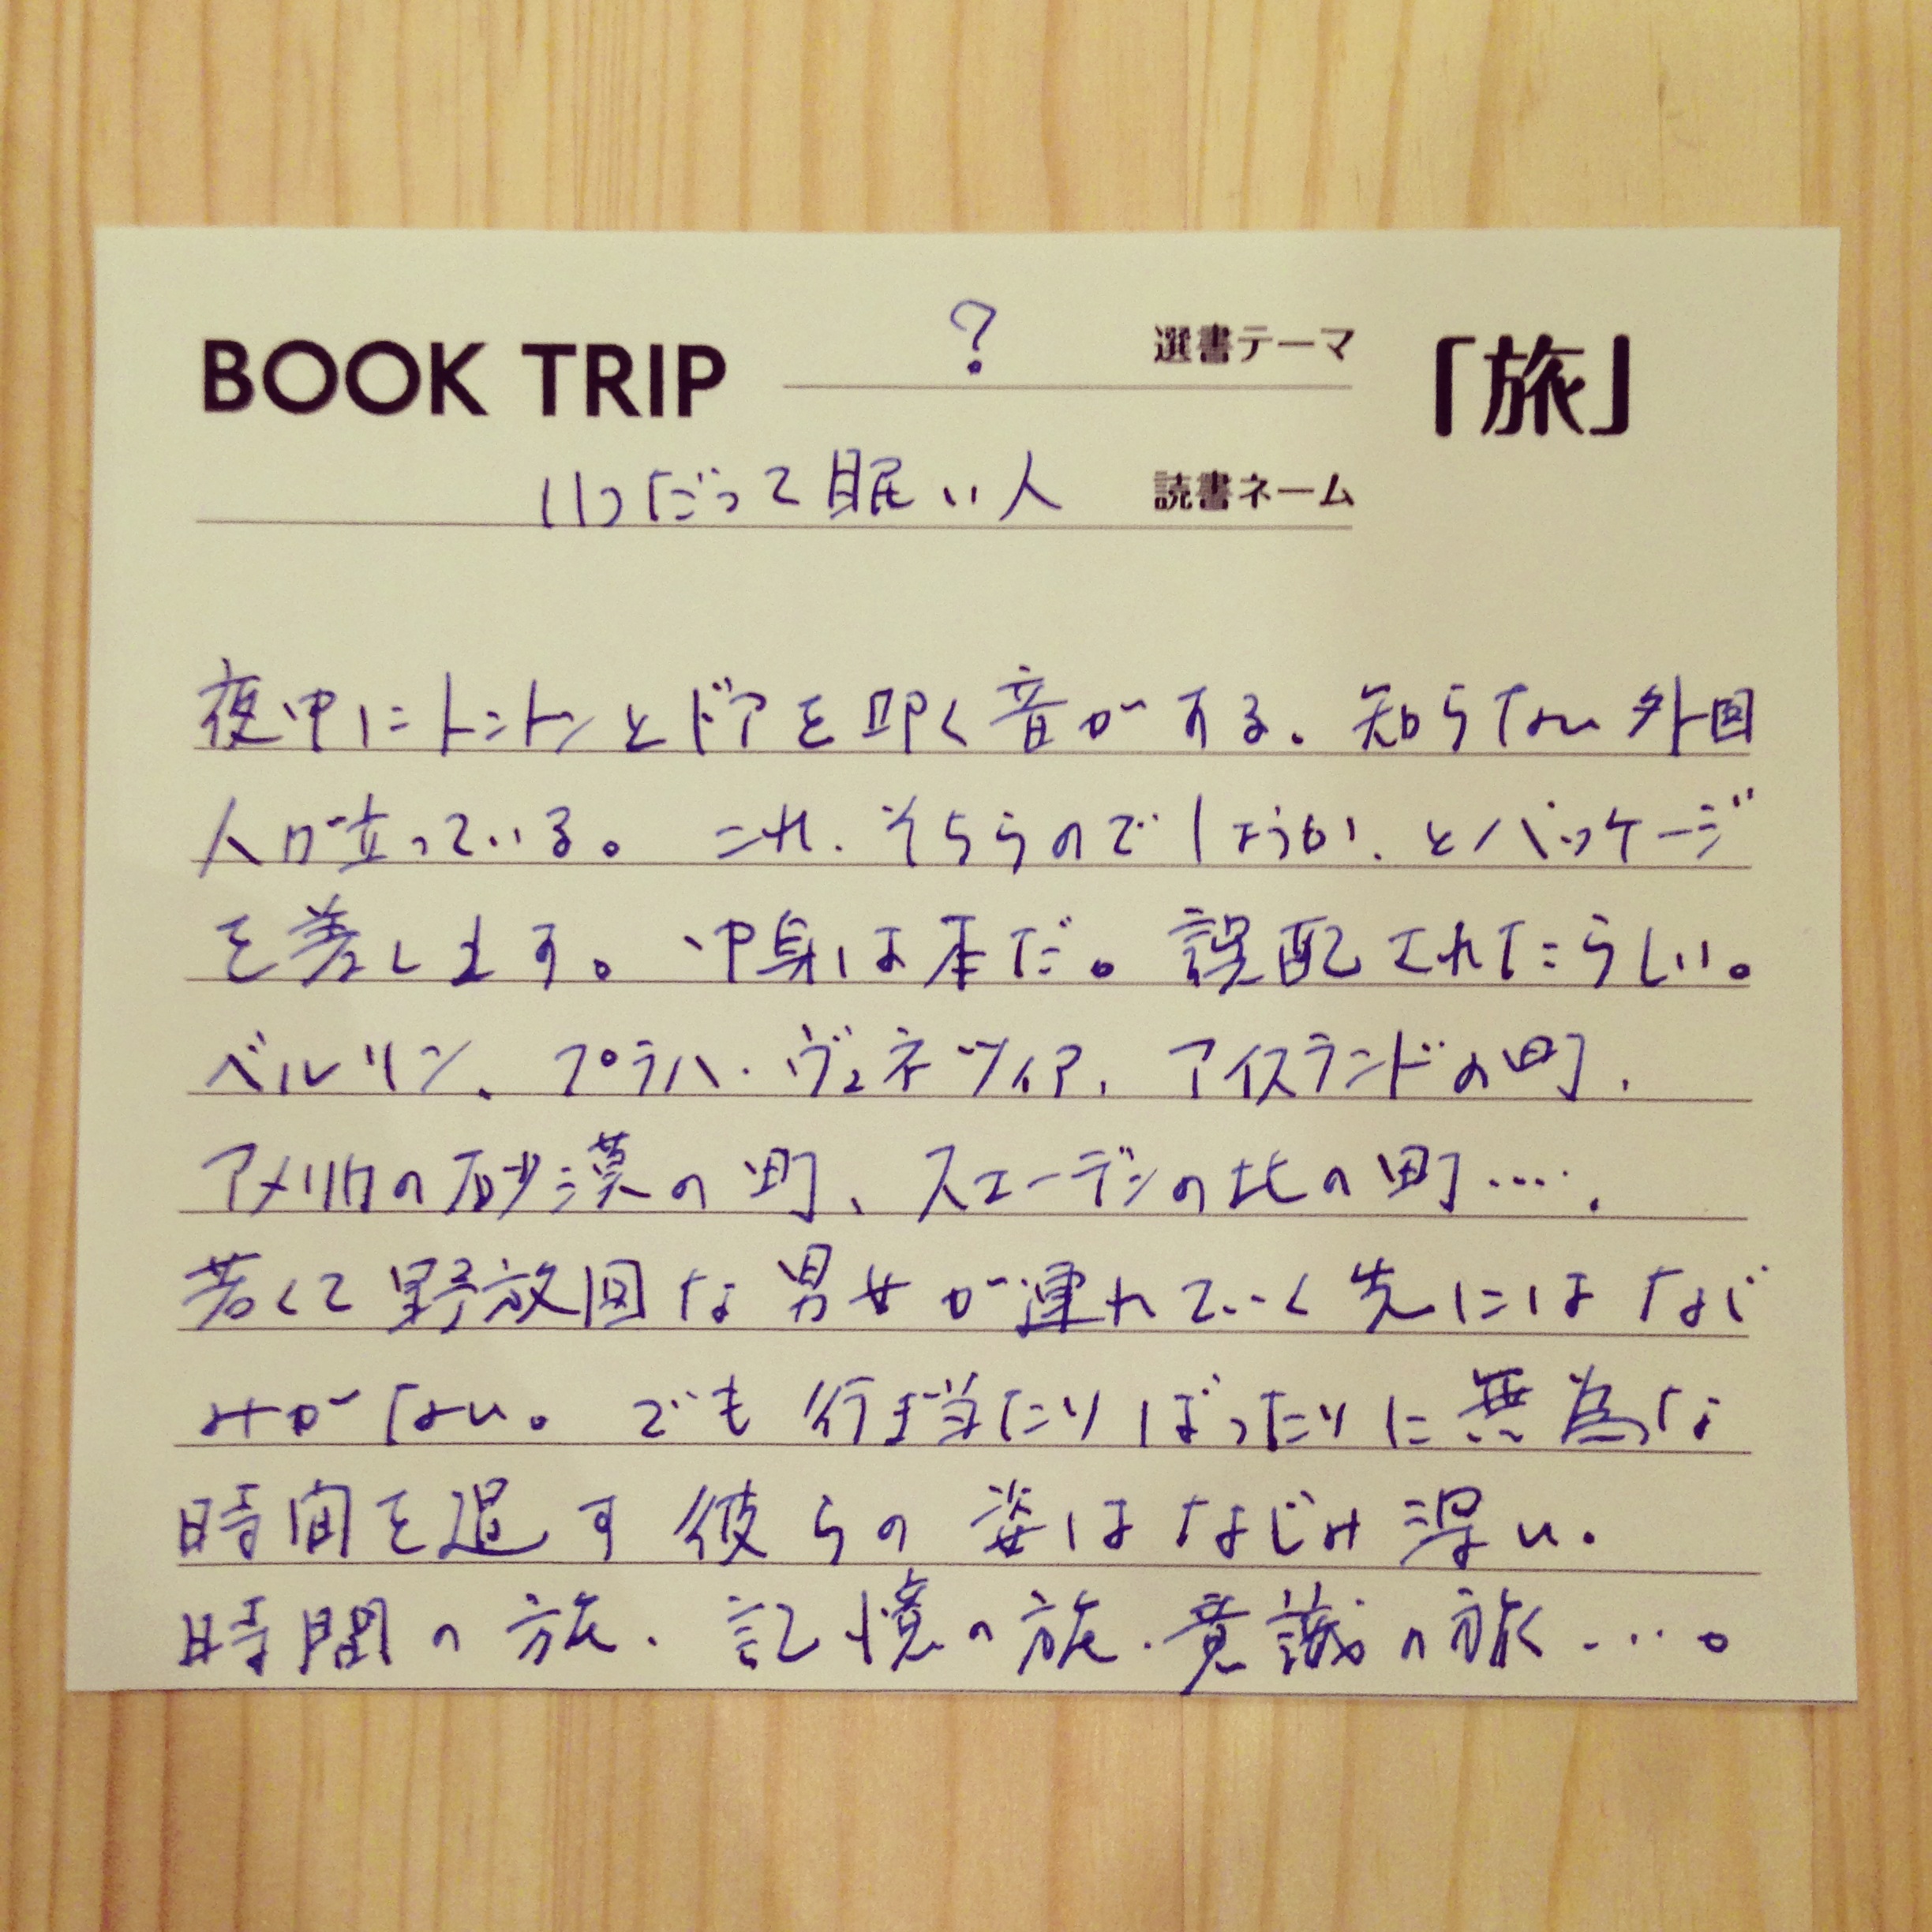 BOOK TRIP
? 選書テーマ 「旅」
いつだって眠い人 読書ネーム
夜中にトントンとドアを叩く音がする。知らない外国
人が立っている。これ、そちらのでしょうか、とパッケージ
を差します。中身は本だ。誤配されたらしい。
ベルリン、プラハ、ヴェネツィア、アイスランドの町、
アメリカの砂漠の町、スエーデンの北の町‥‥、
若くて野放図な男女が連れていく先にはなじ
みがない。でも行き当たりばったりに無為な
時間を過す彼らの姿はなじみ深い。
時間の旅、記憶の旅、意識の旅‥‥。